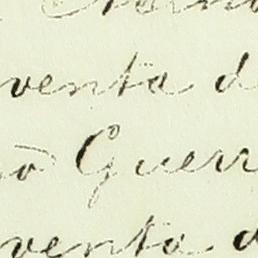 venta d
Guerr
venta d